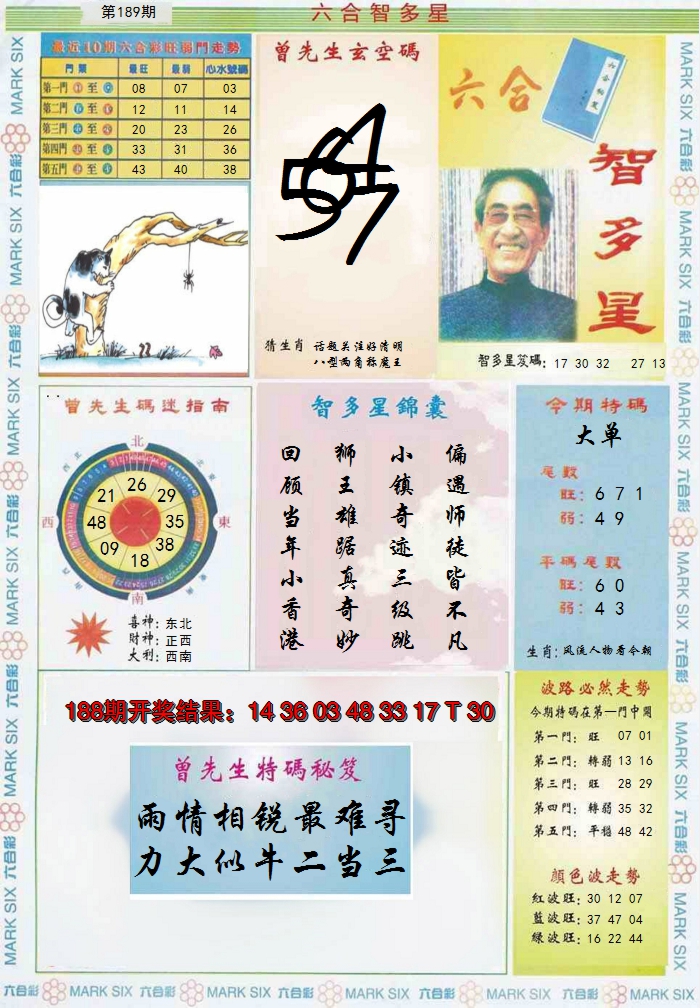 第189期
六合智多星
最近10期六合彩旺弱門走勢
門類 最旺 最弱 心水號碼
第一門 至 08 07 03
第二門 至 12 11 14
第三門 至 20 23 26
第四門 至 33 31 36
第五門 至 43 40 38
曾先生玄空碼
猜生肖 话题关注好清明
八型两角称魔王
六合
智多星
智多星笈碼: 17 30 32 27 13
曾先生碼迷指南
北
東
南
西
26
29
35
38
18
09
48
21
喜神: 东北
财神: 正西
大利: 西南
智多星錦囊
偏遇师徒皆不凡
小镇奇迹三级跳
狮王雄踞真奇妙
回顾当年小香港
今期特碼
大单
尾数
旺: 6 7 1
弱: 4 9
平碼尾数
旺: 6 0
弱: 4 3
生肖: 风流人物看今朝
188期开奖结果: 14 36 03 48 33 17 T 30
曾先生特碼秘笈
雨情相锐最难寻
力大似牛二当三
波路必然走勢
今期特碼在第一門中開
第一門: 旺 07 01
第二門: 轉弱 13 16
第三門: 旺 28 29
第四門: 轉弱 35 32
第五門: 平穩 48 42
顏色波走勢
紅波旺: 30 12 07
藍波旺: 37 47 04
綠波旺: 16 22 44
MARK SIX 六合彩